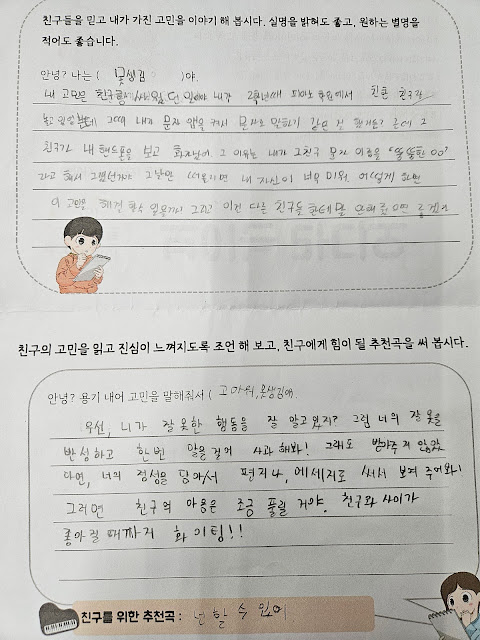 친구들을 믿고 내가 가진 고민을 이야기 해 봅시다. 실명을 밝혀도 좋고, 원하는 별명을
적어도 좋습니다.
안녕? 나는 ( 못생김 )야.
내 고민은 친구랑 있던 일이야 내가 2학년때 피아노 학원에서 친한 친구랑
놀고 있었는데 그때 내가 문자 앱을 켜서 문자로 말하기 같은 걸 했거든? 근데 그
친구가 내 핸드폰을 보고 화났어. 그 이유는 내가 그친구 문자 이름을 "뚱뚱한 OO"
라고 해서 그랬던거야 그날만 떠올리면 내 자신이 너무 미워. 어떻게 하면
이 고민을 해결 할 수 있을까? 그리고 이건 다른 친구들 한테 말 안해줬으면 좋겠어
친구의 고민을 읽고 진심이 느껴지도록 조언 해 보고, 친구에게 힘이 될 추천곡을 써 봅시다.
안녕? 용기 내어 고민을 말해줘서 ( 고마워, 못생김아.
우선, 니가 잘못한 행동을 잘 알고 있지? 그럼 너의 잘못을
반성하고 한번 말을 걸어 사과 해봐! 그래도 받아주지 않았
다면, 너의 정성을 담아서 편지나, 메세지로 써서 보여 주어봐!
그러면 친구의 마음은 조금 풀릴 거야. 친구와 사이가
좋아질 때까지 화이팅!!
친구를 위한 추천곡 : 넌 할 수 있어